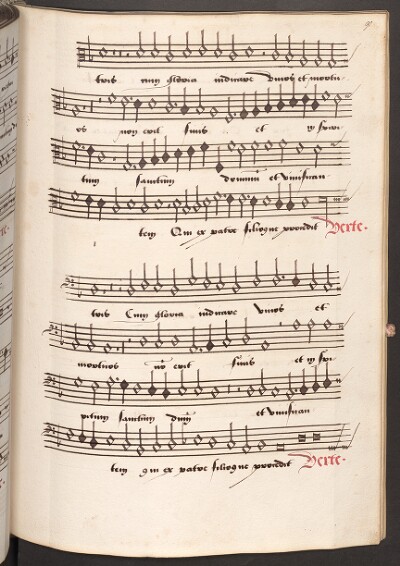 tris cum gloria iudicare vivos et mortu-
os non erit finis et in spiri-
tum sanctum dominum et vivifican-
tem Qui ex patre filioque procedit Verte.
tris Cum gloria iudicare vivos et
mortuos nō erit finis et in spi-
ritum sanctum dnm et vivifican-
tem qui ex patre filioque procedit Verte.